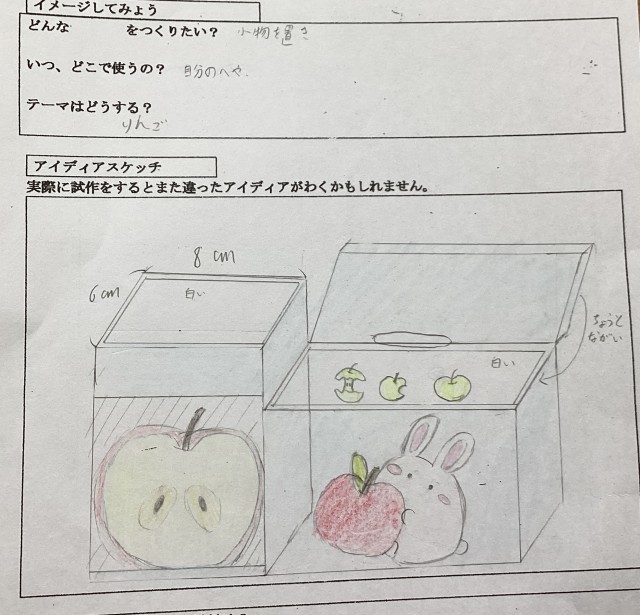 イメージしてみよう
どんな　　　をつくりたい？ 小物を置き
いつ、どこで使うの？ 自分のへや.
テーマはどうする？
りんご
アイディアスケッチ
実際に試作をするとまた違ったアイディアがわくかもしれません。
8 cm
6 cm
白い
白い
ちょうど
ながい